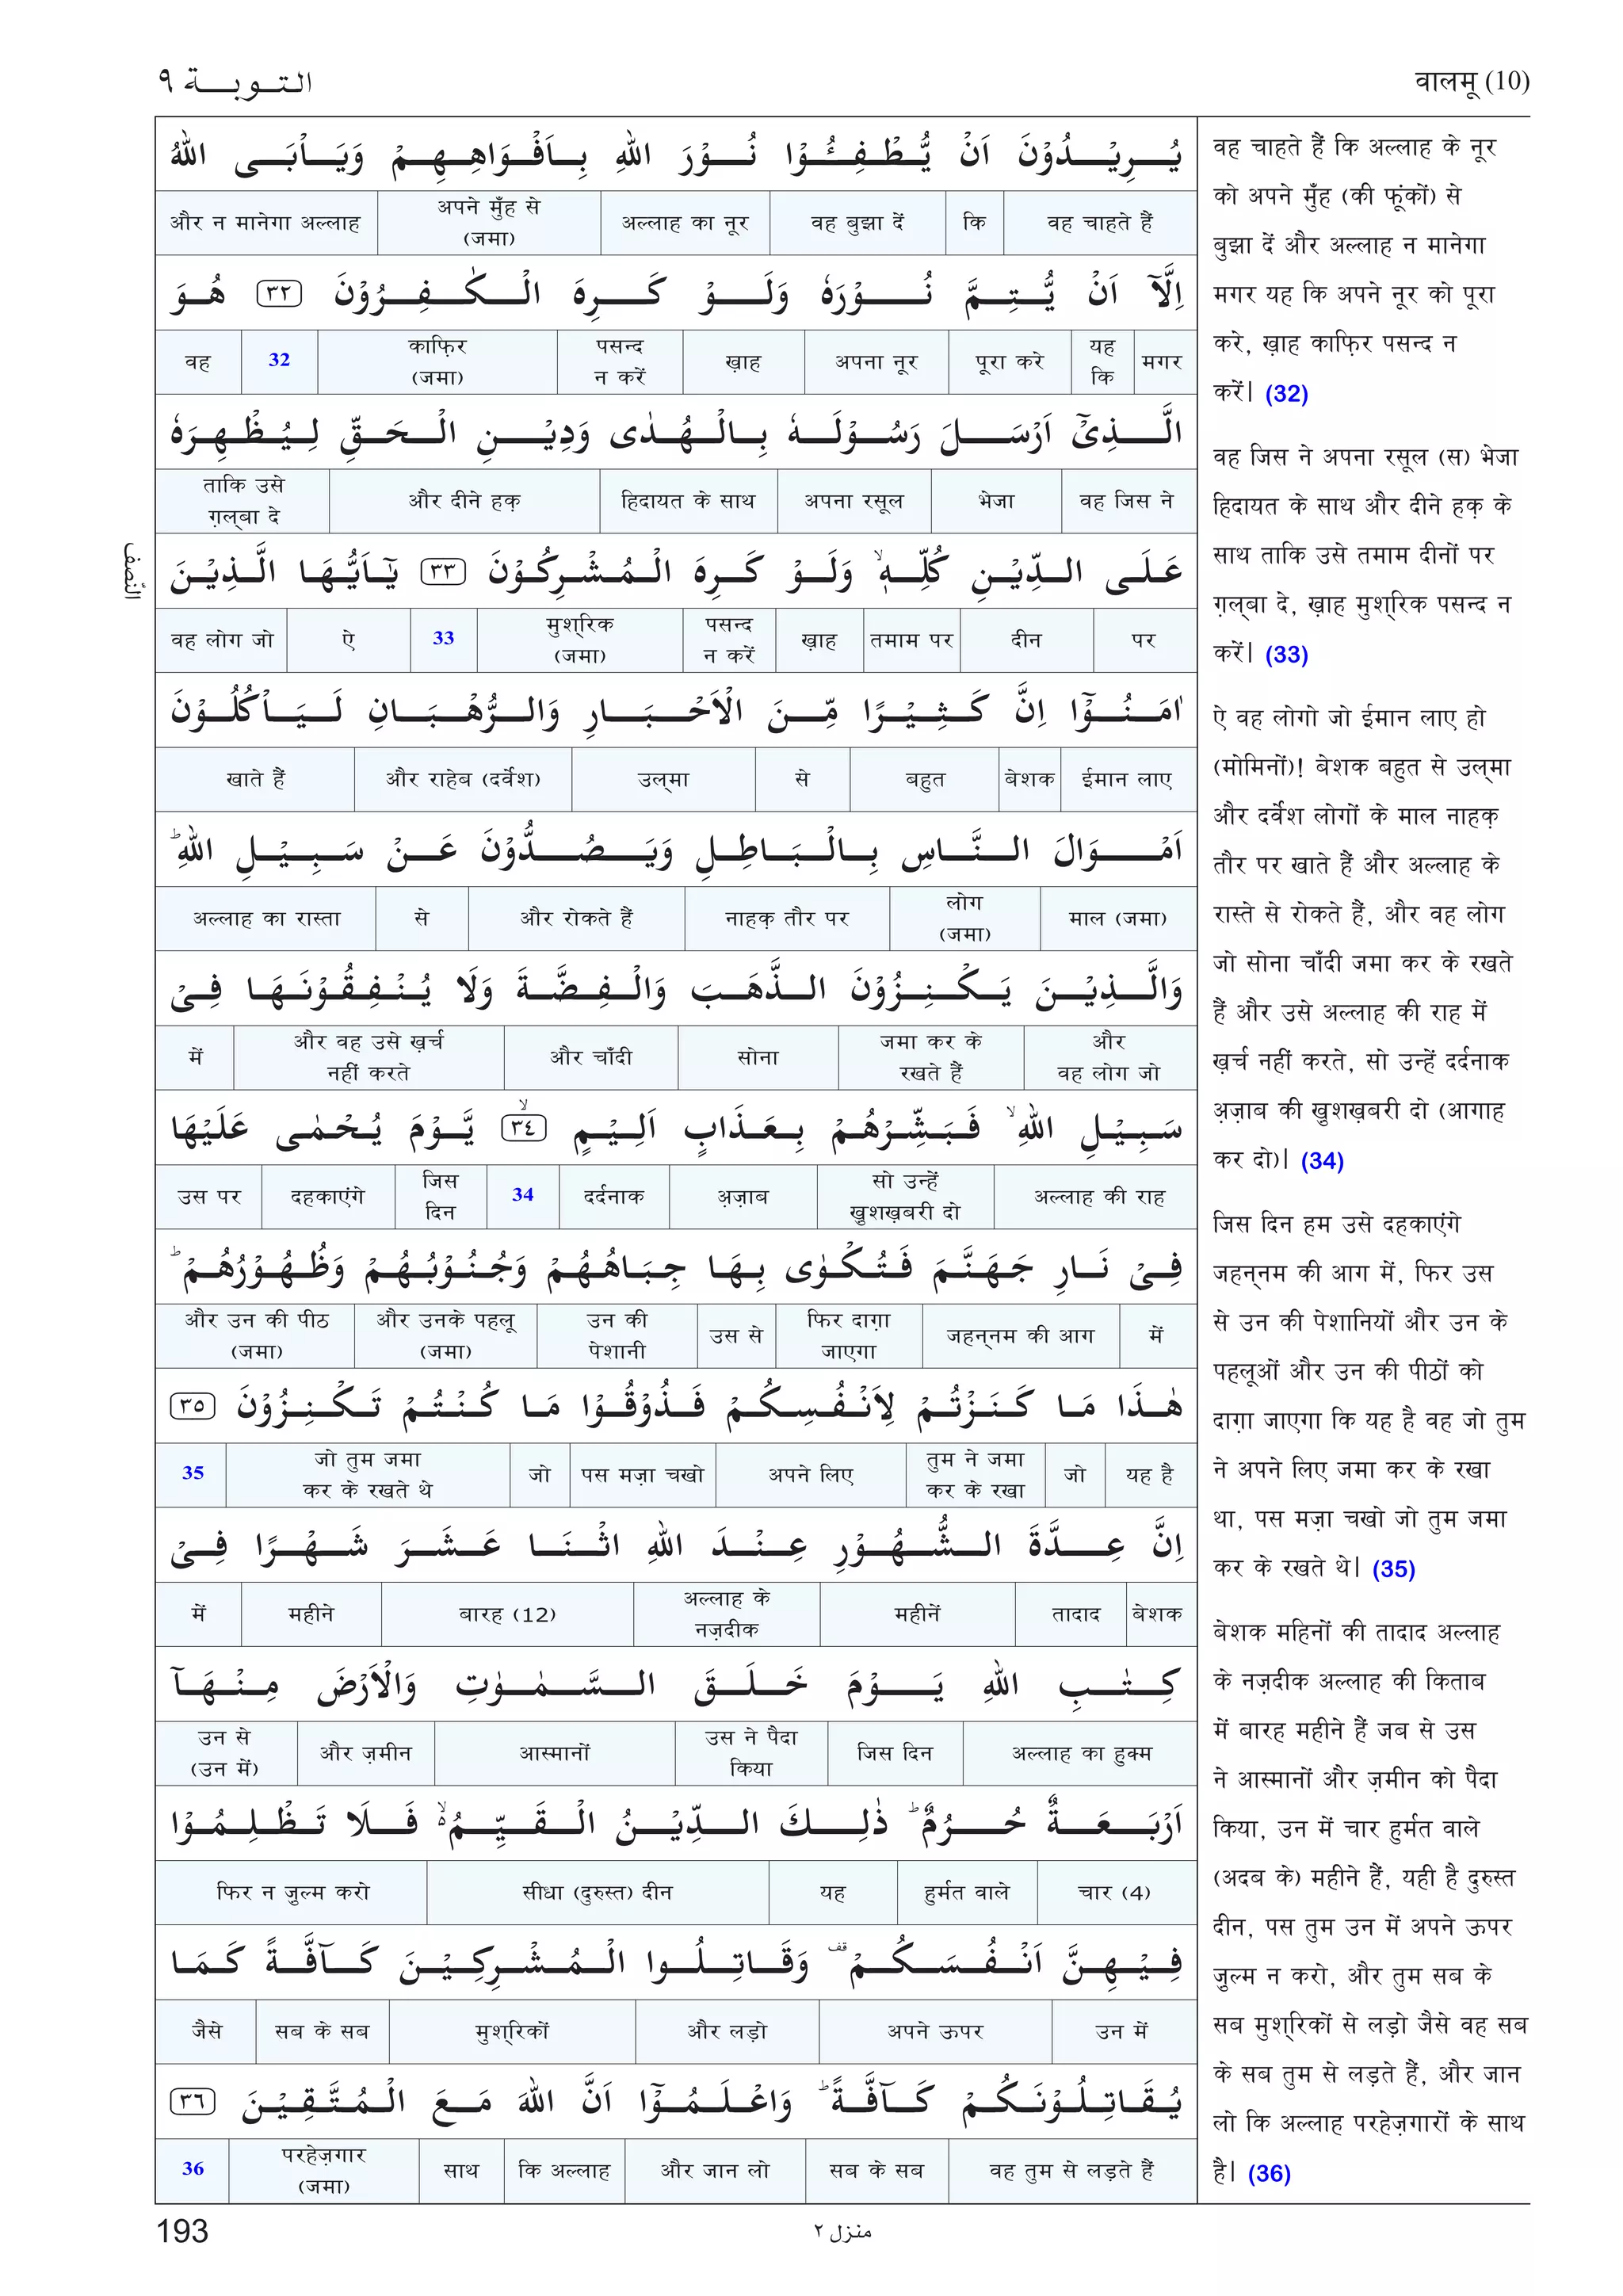 التوبة ٩
वालमू (10)
يُرِيْدُوْنَ اَنْ يُّطْفِـُٔوْا نُوْرَ اللهِ بِاَفْوَاهِهِمْ وَيَاْبَى اللهُ
वह चाहते हैं | कि | वह बुझा दें | अल्लाह का नूर | अपने मुँह से (जमा) | और न मानेगा अल्लाह
اِلَّآ اَنْ يُّتِمَّ نُوْرَهٗ وَلَوْ كَرِهَ الْكٰفِرُوْنَ ٣٢ هُوَ
मगर | यह कि | पूरा करे | अपना नूर | ख़ाह | पसन्द न करें | काफ़िर (जमा) | 32 | वह
الَّذِيْٓ اَرْسَلَ رَسُوْلَهٗ بِالْهُدٰى وَدِيْنِ الْحَقِّ لِيُظْهِرَهٗ
वह जिस ने | भेजा | अपना रसूल | हिदायत के साथ | और दीने हक़ | ताकि उसे ग़ल्बा दे
عَلَى الدِّيْنِ كُلِّهٖ ۙ وَلَوْ كَرِهَ الْمُشْرِكُوْنَ ٣٣ يٰٓاَيُّهَا الَّذِيْنَ
पर | दीन | तमाम पर | ख़ाह | पसन्द न करें | मुश्रिक (जमा) | 33 | ऐ | वह लोग जो
النّصف
اٰمَنُوْٓا اِنَّ كَثِيْرًا مِّنَ الْاَحْبَارِ وَالرُّهْبَانِ لَيَاْكُلُوْنَ
ईमान लाए | बेशक | बहुत | से | उल्मा | और राहेब (दर्वेश) | खाते हैं
اَمْوَالَ النَّاسِ بِالْبَاطِلِ وَيَصُدُّوْنَ عَنْ سَبِيْلِ اللهِ ؕ
माल (जमा) | लोग (जमा) | नाहक़ तौर पर | और रोकते हैं | से | अल्लाह का रास्ता
وَالَّذِيْنَ يَكْنِزُوْنَ الذَّهَبَ وَالْفِضَّةَ وَلَا يُنْفِقُوْنَهَا فِيْ
और वह लोग जो | जमा कर के रखते हैं | सोना | और चाँदी | और वह उसे ख़र्च नहीं करते | में
سَبِيْلِ اللهِ ۙ فَبَشِّرْهُمْ بِعَذَابٍ اَلِيْمٍ ۙ ٣٤ يَّوْمَ يُحْمٰى عَلَيْهَا
अल्लाह की राह | सो उन्हें ख़ुशख़बरी दो | अ़ज़ाब | दर्दनाक | 34 | जिस दिन | दहकाएंगे | उस पर
فِيْ نَارِ جَهَنَّمَ فَتُكْوٰى بِهَا جِبَاهُهُمْ وَجُنُوْبُهُمْ وَظُهُوْرُهُمْ ؕ
में | जहन्नम की आग | फिर दाग़ा जाएगा | उस से | उन की पेशानी | और उनके पहलू (जमा) | और उन की पीठ (जमा)
هٰذَا مَا كَنَزْتُمْ لِاَنْفُسِكُمْ فَذُوْقُوْا مَا كُنْتُمْ تَكْنِزُوْنَ ٣٥
यह है | जो | तुम ने जमा कर के रखा | अपने लिए | पस मज़ा चखो | जो | जो तुम जमा कर के रखते थे | 35
اِنَّ عِدَّةَ الشُّهُوْرِ عِنْدَ اللهِ اثْنَا عَشَرَ شَهْرًا فِيْ
बेशक | तादाद | महीनें | अल्लाह के नज़दीक | बारह (12) | महीने | में
كِتٰبِ اللهِ يَوْمَ خَلَقَ السَّمٰوٰتِ وَالْاَرْضَ مِنْهَآ
अल्लाह का हुक्म | जिस दिन | उस ने पैदा किया | आस्मानों | और ज़मीन | उन से (उन में)
اَرْبَعَةٌ حُرُمٌ ؕ ذٰلِكَ الدِّيْنُ الْقَيِّمُ ۙ۬ فَلَا تَظْلِمُوْا
चार (4) | हुर्मत वाले | यह | सीधा (दुरुस्त) दीन | फिर न ज़ुल्म करो
فِيْهِنَّ اَنْفُسَكُمْ قف وَقَاتِلُوا الْمُشْرِكِيْنَ كَآفَّةً كَمَا
उन में | अपने ऊपर | और लड़ो | मुश्रिकों | सब के सब | जैसे
يُقَاتِلُوْنَكُمْ كَآفَّةً ؕ وَاعْلَمُوْٓا اَنَّ اللهَ مَعَ الْمُتَّقِيْنَ ٣٦
वह तुम से लड़ते हैं | सब के सब | और जान लो | कि अल्लाह | साथ | परहेज़गार (जमा) | 36
वह चाहते हैं कि अल्लाह के नूर
को अपने मुँह (की फूंकों) से
बुझा दें और अल्लाह न मानेगा
मगर यह कि अपने नूर को पूरा
करे, ख़ाह काफ़िर पसन्द न
करें। (32)
वह जिस ने अपना रसूल (स) भेजा
हिदायत के साथ और दीने हक़ के
साथ ताकि उसे तमाम दीनों पर
ग़ल्बा दे, ख़ाह मुश्रिक पसन्द न
करें। (33)
ऐ वह लोगो जो ईमान लाए हो
(मोमिनों)! बेशक बहुत से उल्मा
और दर्वेश लोगों के माल नाहक़
तौर पर खाते हैं और अल्लाह के
रास्ते से रोकते हैं, और वह लोग
जो सोना चाँदी जमा कर के रखते
हैं और उसे अल्लाह की राह में
ख़र्च नहीं करते, सो उन्हें दर्दनाक
अ़ज़ाब की ख़ुशख़बरी दो (आगाह
कर दो)। (34)
जिस दिन हम उसे दहकाएंगे
जहन्नम की आग में, फिर उस
से उन की पेशानियों और उन के
पहलूओं और उन की पीठों को
दाग़ा जाएगा कि यह है वह जो तुम
ने अपने लिए जमा कर के रखा
था, पस मज़ा चखो जो तुम जमा
कर के रखते थे। (35)
बेशक महिनों की तादाद अल्लाह
के नज़दीक अल्लाह की किताब
में बारह महीने हैं जब से उस
ने आस्मानों और ज़मीन को पैदा
किया, उन में चार हुर्मत वाले
(अदब के) महीने हैं, यही है दुरुस्त
दीन, पस तुम उन में अपने ऊपर
ज़ुल्म न करो, और तुम सब के
सब मुश्रिकों से लड़ो जैसे वह सब
के सब तुम से लड़ते हैं, और जान
लो कि अल्लाह परहेज़गारों के साथ
है। (36)
193
منزل ٢